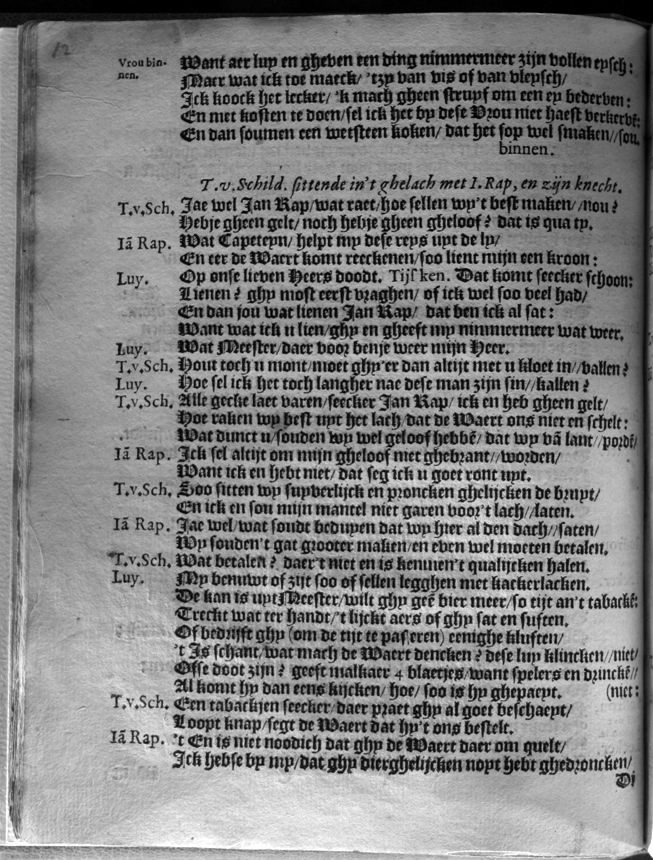 12
Vrou bin- Want aer luy en gheven een ding nimmermeer zijn vollen eysch:
nen. Maer wat ick toe maeck/ 'tzy van vis of van vleysch/
Ick koock het lecker/ 'k mach gheen struyf om een ey bederven:
En met kosten te doen/sel ick het by dese Vrou niet haest verkervē:
En dan soumen een wetsteen koken/ dat het sop wel smaken//sou.
binnen.
T.v.Schild. sittende in't ghelach met I. Rap, en zijn knecht.
T.v.Sch. Jae wel Jan Rap/wat raet/hoe sellen wy't best maken//nou?
Hebje gheen gelt/ noch hebje gheen gheloof? dat is qua ty.
Iā Rap. Wat Capeteyn/ helpt my dese reys uyt de ly/
En eer de Waert komt reeckenen/soo lient mijn een kroon:
Luy. Op onse lieven Heers doodt. Tijsken. Dat komt seecker schoon:
Lienen? ghy most eerst vraghen/ of ick wel soo veel had/
En dan jou wat lienen Jan Rap/ dat ben ick al sat:
Want wat ick u lien/ghy en gheeft my nimmermeer wat weer.
Luy. Wat Meester/daer voor benje weer mijn Heer.
T.v.Sch. Hout toch u mont/moet ghy'er dan altijt met u kloet in//vallen?
Luy. Hoe sel ick het toch langher nae dese man zijn sin//kallen?
T.v.Sch. Alle gecke laet varen/seecker Jan Rap/ ick en heb gheen gelt/
Hoe raken wy best uyt het lach/dat de Waert ons niet en schelt:
Wat dunct u/souden wy wel geloof hebbē/ dat wy vā lant//pordē/
Iā Rap. Ick sel altijt om mijn gheloof niet ghebrant//worden/
Want ick en hebt niet/ dat seg ick u goet ront uyt.
T.v.Sch. Soo sitten wy suyverlijck en proncken ghelijcken de bruyt/
En ick en sou mijn mantel niet garen voor't lach//laten.
Iā Rap. Jae wel/wat soudt beduyen dat wy hier al den dach//saten/
Wy souden't gat grooter maken/en even wel moeten betalen.
T.v.Sch. Wat betalen? daer't niet en is kenmen't qualijcken halen.
Luy. My benuwt of zijt soo of sellen legghen met kackerlacken.
De kan is uyt Meester/wilt ghy geē bier meer/so tijt an't tabackē:
Treckt wat ter handt/'t lijckt aers of ghy sat en suften.
Of bedrijft ghy (om de tijt te passeren) eenighe kluften/
't Is schant/wat mach de Waert dencken? dese luy klincken//niet/
Offe doot zijn? geeft malkaer 4 blaetjes/want spelers en drinckē//
Al komt hy dan eens kijcken/ hoe/ soo is hy ghepaeyt. (niet:
T.v.Sch. Een tabackjen seecker/daer praet ghy al goet beschaeyt/
Loopt knap/segt de Waert dat hy't ons bestelt.
Iā Rap. 't En is niet noodich dat ghy de Waert daer om quelt/
Ick hebse by my/dat ghy dierghelijcken noyt hebt ghedroncken/
Di